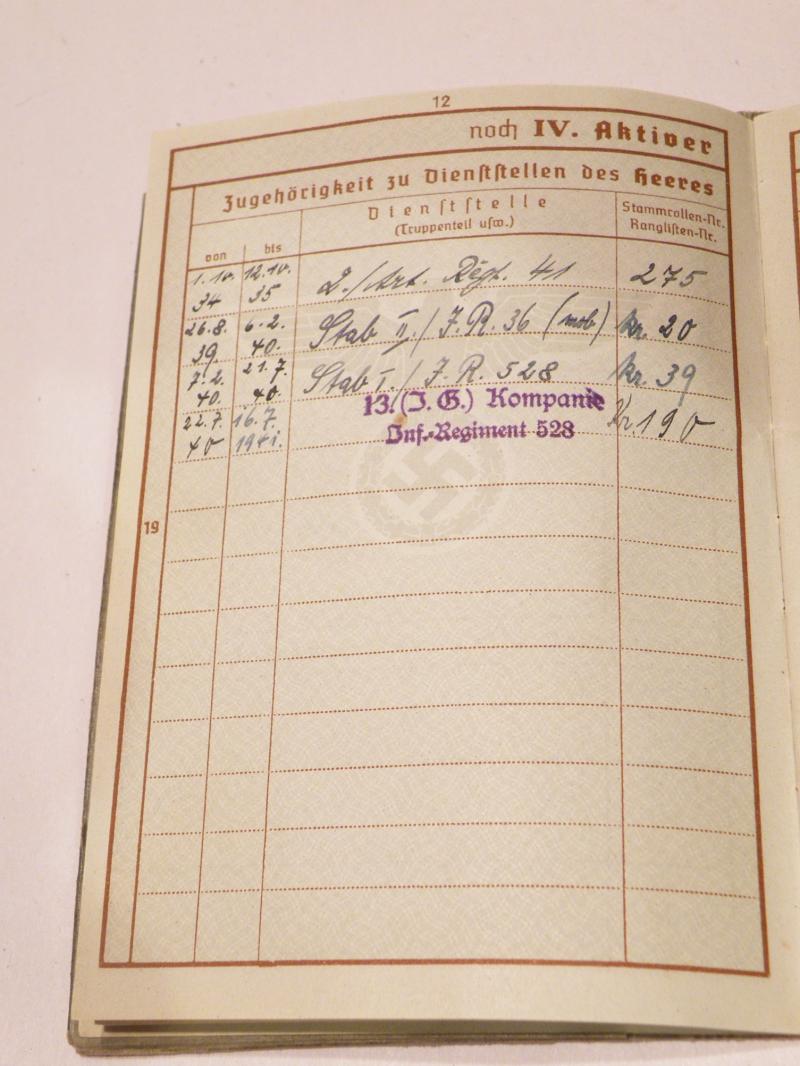 12
noch IV. Aktiver
Zugehörigkeit zu Dienststellen des Heeres
von bis
Dienststelle
(Truppenteil usw.)
Stammrollen-Nr.
Ranglisten-Nr.
1.10. 12.10.
34 35
2./Art. Regt. 41 275
26.8. 6.2.
39. 40.
Stab II./J.R. 36 (mob) kr. 20
7.2. 21.7.
40. 40.
Stab I./J.R. 528 kr. 39
22.7. 16.7.
40 1941.
13.(J.G.) Kompanie
Inf.-Regiment 528
Kr. 190
19